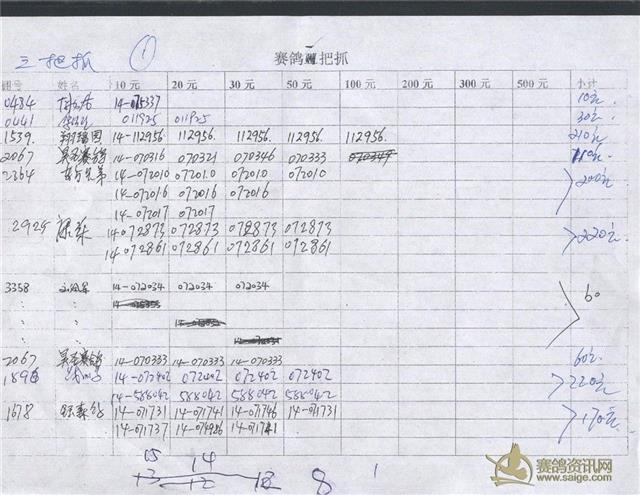 三把抓 ① 赛鸽 把抓
翻号 姓名 10元 20元 30元 50元 100元 200元 300元 500元 小计
0434 14-075337 10元
0441 011925 011925 30元
1539. 14-112956 112956. 112956. 112956 112956. 210元
2067 14-070316 070321 070346 070333 110元
2364 14-072010 072010 072010 072010 200元
14-072016 072016 072016
14-072017 072017
2925 14072873 072873 072873 072873 220元
14072861 072861 072861 072861
3358 14-072034 072034 072034 60
2067 14-070333 14-070333 14-070333 60元
14-072402 072402 072402 072402 220元
14-588042 588042 588042 588042
1678 14-071731 14-071741 14-071746 14-071731 170元
14-071737 14-071741
15 14
13 12 8 1
赛鸽资讯网
www.saige.com